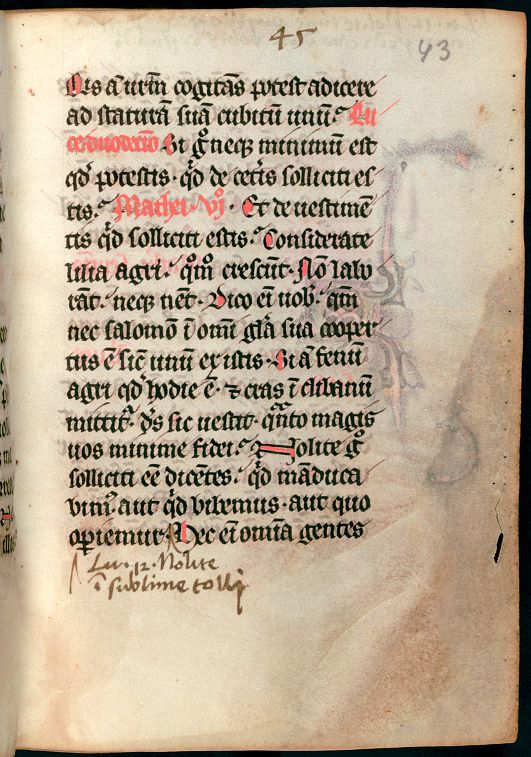 45
43
Qis aut̄ urm̄ cogitās potest adicere
ad staturā suā cubitū unū? Lu
ce duodecīo Si gͦ neqꝫ minimū est
qd̓ potestis · qd̓ de cet̓is solliciti es
tis? Mathei · vjͦ · Et de uestimē
tis qd̓ solliciti estis? Considerate
lilia agri · quōm̄ crescūt · Nō labo
rāt · neqꝫ nēt · Dico ēi uob̓ · qm̄
nec salomō ī om̄i gl̄a sua cooper
tus ē sic̄ unū ex istis · Si aū fenū
agri qd̓ hodie ē · ⁊ cras ī clibanū
mittit᷑ · d̄s sic uestit · qͣnto magis
uos minime fidei? Nolite gͦ
solliciti eē dicētes? qd̓ māduca
bim᷒ · aut qd̓ bibemus · aut quo
opiemur · Nec ēi om̄ia gentes
Lu · 12 · Nolite
ī sublime tolli